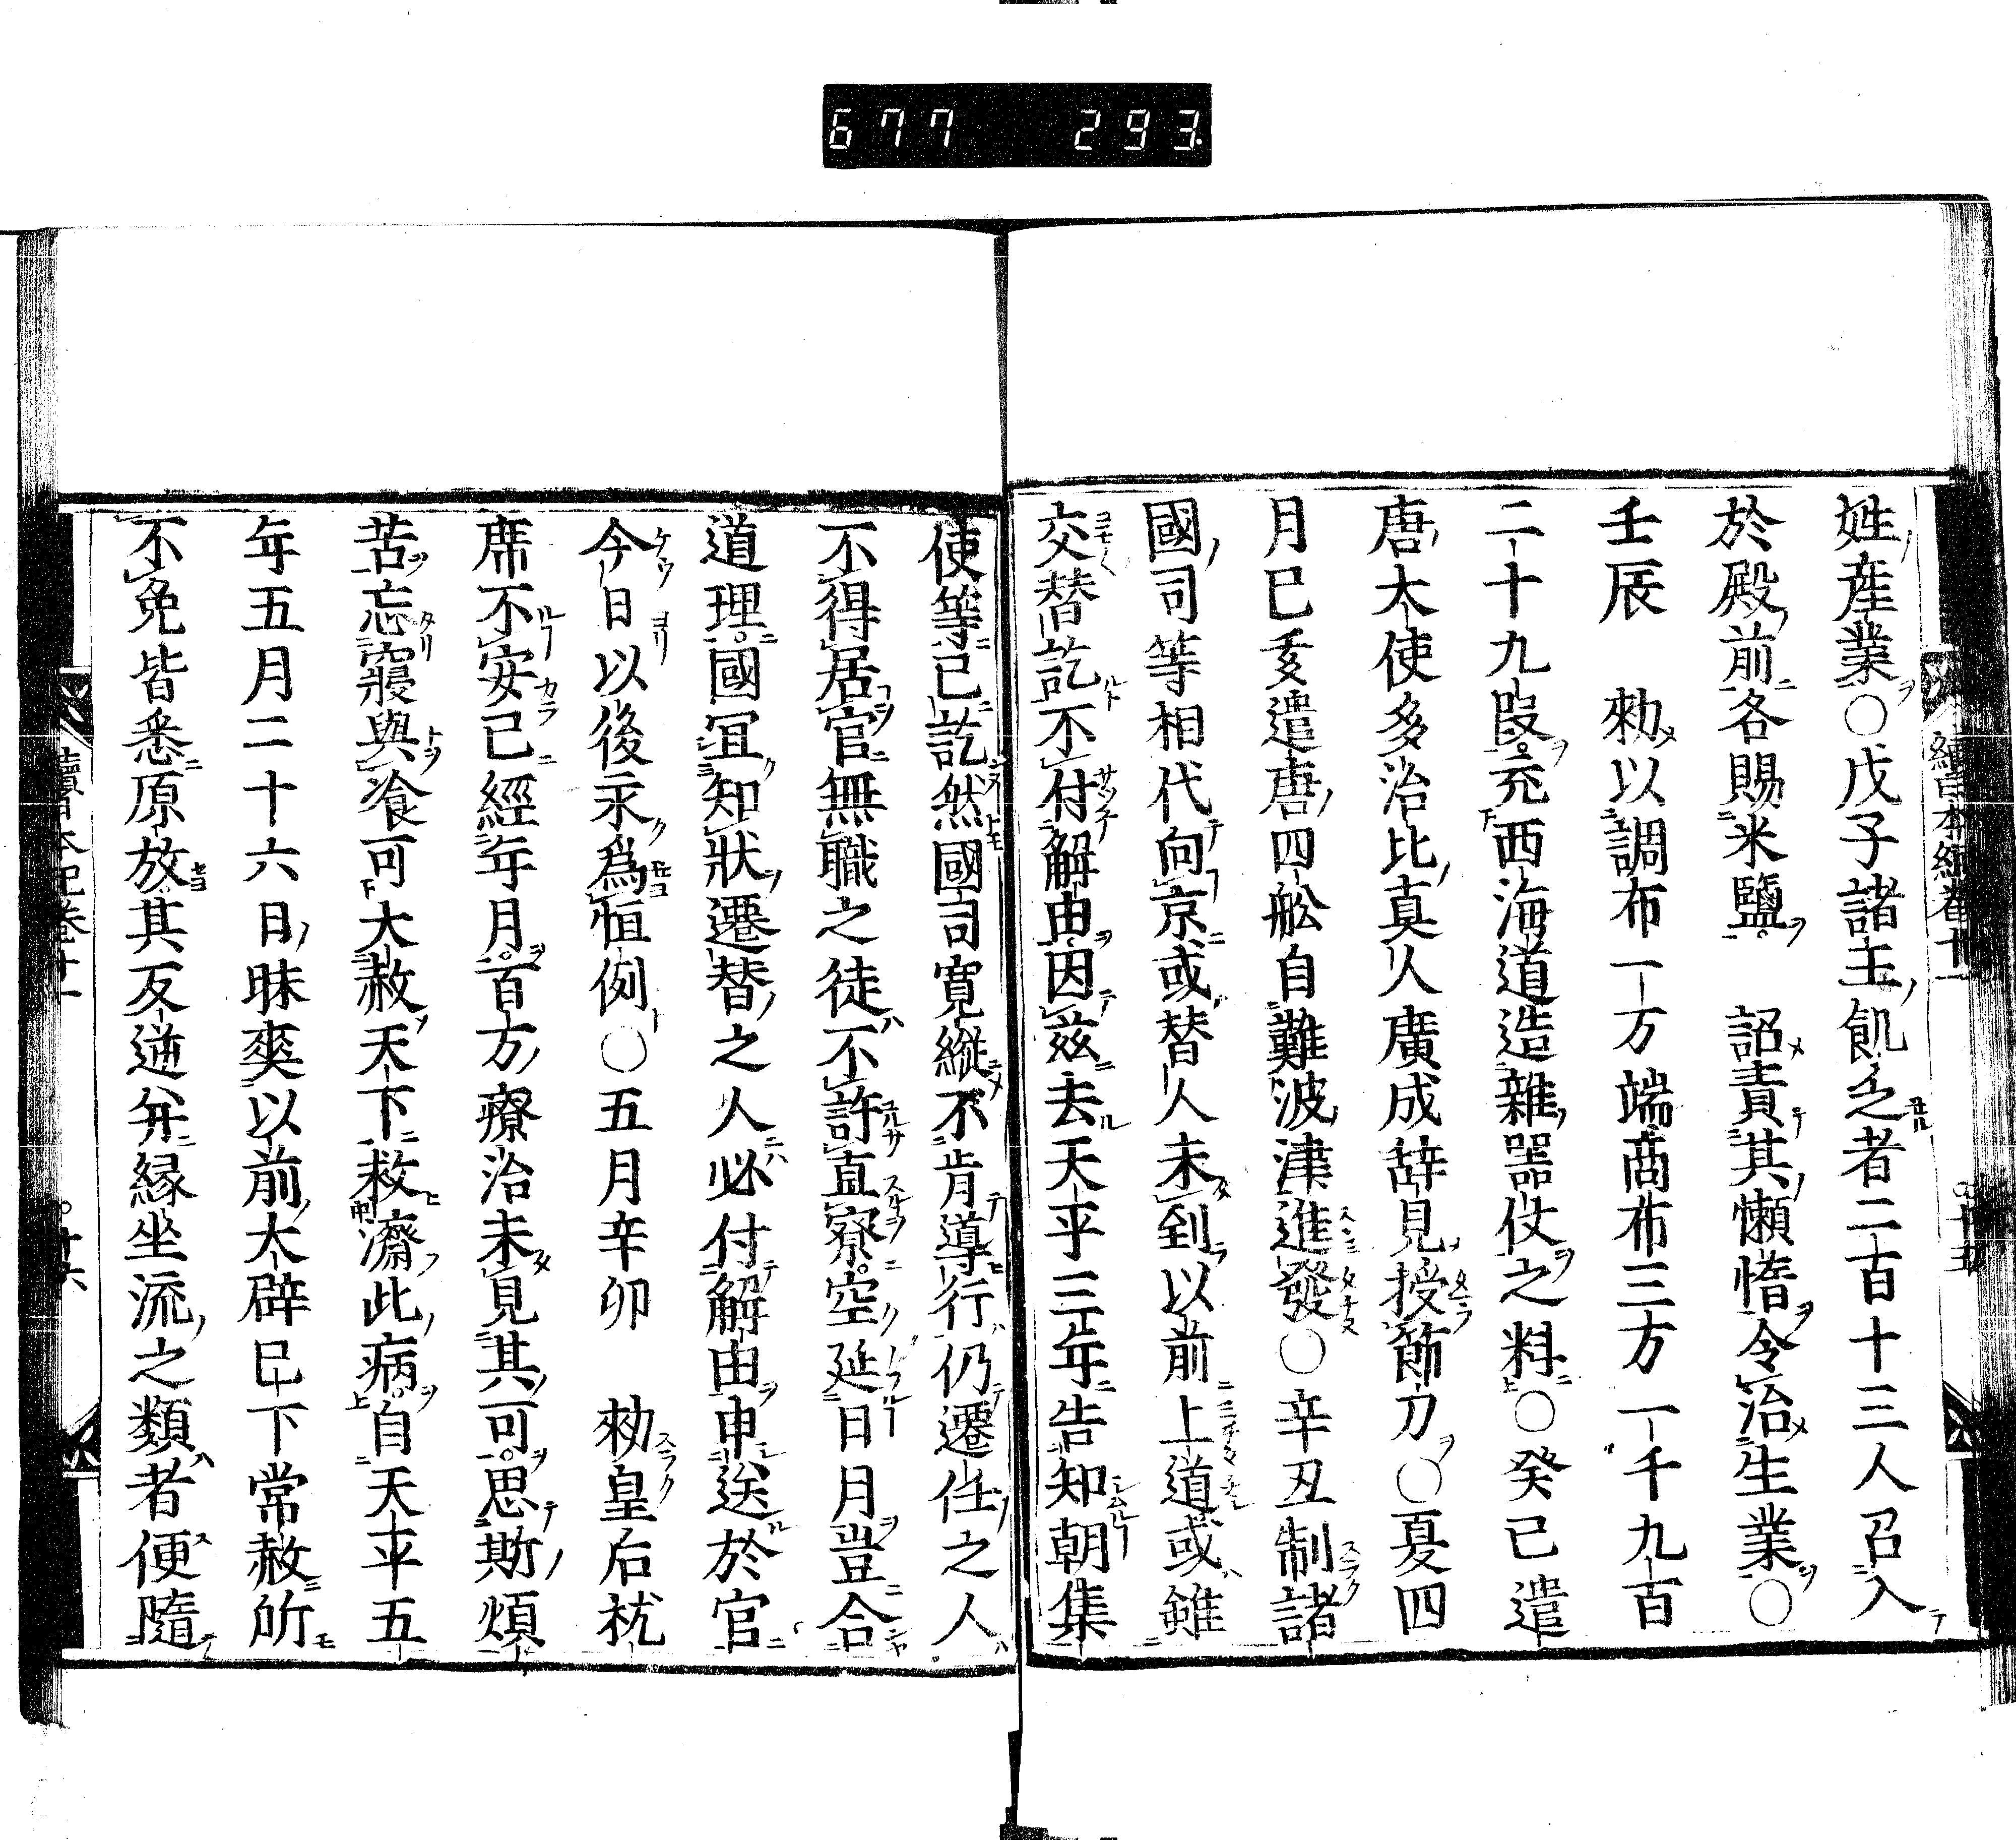 677 293
姓産業○戊子諸王飢乏者二百十三人召入
於殿前各賜米鹽 詔責其懶惰令治生業○
壬辰 勑以調布一万端商布三万一千九百
二十九段充西海道造雜噐仗之料○癸巳遣
唐大使多治比真人廣成辞見授節刀○夏四
月已亥遣唐四舩自難波津進發○辛丑制諸
國司等相代向京或替人未到以前上道或雖
交替訖不付解由因茲去天平三年告知朝集
使等已訖然國司寛縱不肯導行仍遷任之人
不得居官無職之徒不許直寮空延日月豈合
道理國冝知狀遷替之人必付解由申送於官
今日以後永爲恒例○五月辛卯 勑皇后枕
席不安已經年月百方療治未見其可思斯煩
苦忘寢與飡可大赦天下救濟此病自天平五
年五月二十六日昧爽以前大辟已下常赦所
不免皆悉原放其反逆并縁坐流之類者便隨